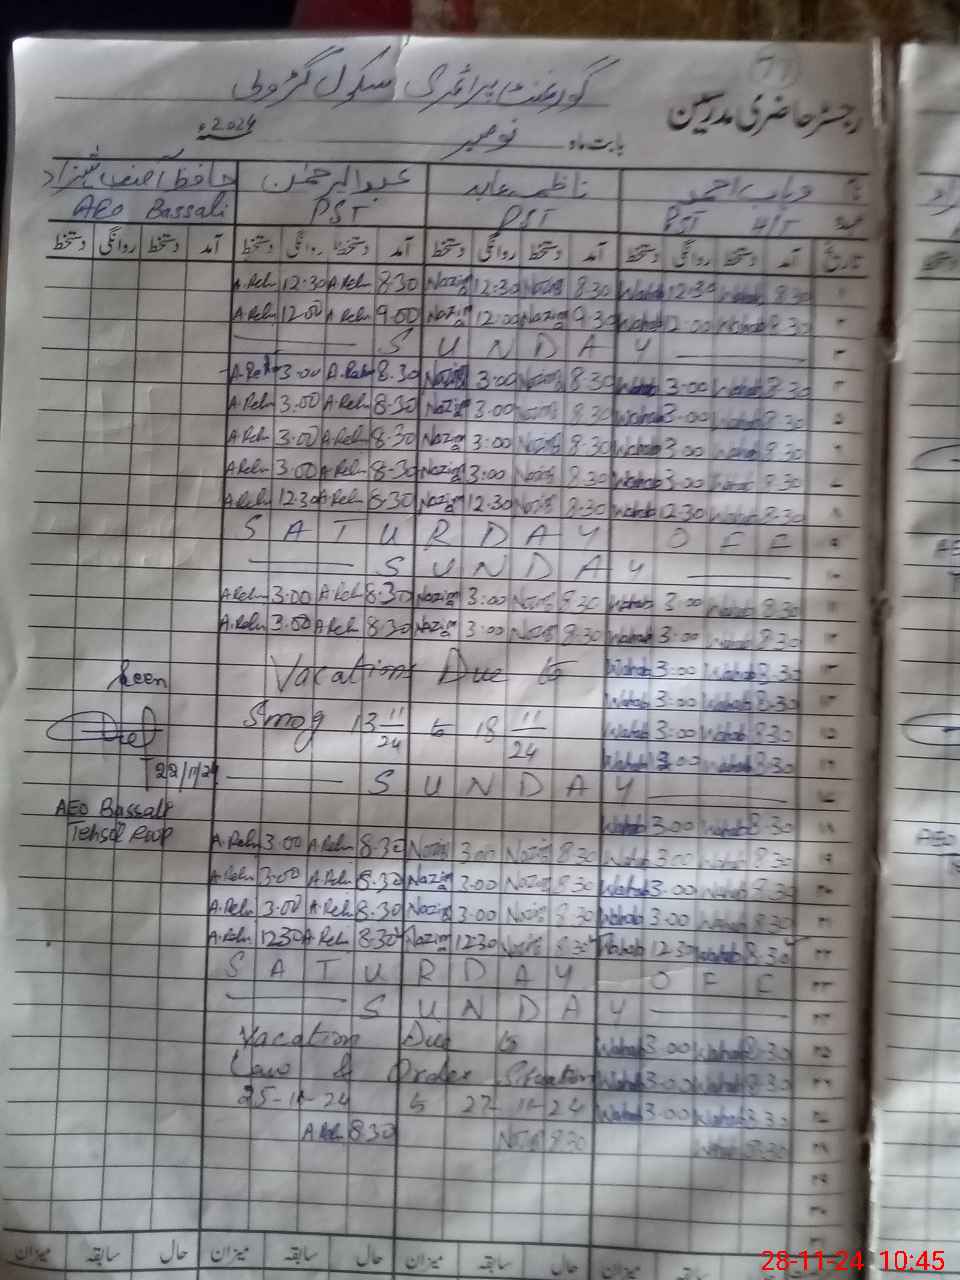 گورنمنٹ پرائمری سکول گڑولی
رجسٹر حاضری مدرسین
بابت ماہ نومبر 2024ء
نام وہاب احمد ناظمہ عابد عبدالرحمٰن حافظ آصف شہزاد
عہدہ PST H/T PST PST AEO Bassali
تاریخ آمد دستخط روانگی دستخط آمد دستخط روانگی دستخط آمد دستخط روانگی دستخط آمد دستخط روانگی دستخط
A.Rehn 12:30 A.Rehn 8.30 Nazima 12:30 Nazima 8.30 Wahab 12:30 Wahab 8.30 ۱
A.Rehn 12:00 A.Rehn 9.00 Nazima 12:00 Nazima 9.30 Wahab 12:00 Wahab 8.30 ۲
S U N D A Y ۳
A.Rehn 3.00 A.Rehn 8.30 Nazima 3:00 Nazima 8.30 Wahab 3:00 Wahab 8.30 ۴
A.Rehn 3.00 A.Rehn 8.30 Nazima 3.00 Nazima 8.30 Wahab 3.00 Wahab 8.30 ۵
A.Rehn 3.00 A.Rehn 8.30 Nazima 3:00 Nazima 8.30 Wahab 3.00 Wahab 8.30 ۶
A.Rehn 3.00 A.Rehn 8.30 Nazima 3:00 Nazima 8.30 Wahab 3.00 Wahab 8.30 ۷
A.Rehn 12.30 A.Rehn 8.30 Nazima 12.30 Nazima 8.30 Wahab 12.30 Wahab 8.30 ۸
S A T U R D A Y O F F ۹
S U N D A Y ۱۰
A.Rehn 3.00 A.Rehn 8.30 Nazima 3:00 Nazima 8.30 Wahab 3:00 Wahab 8.30 ۱۱
A.Rehn 3.00 A.Rehn 8.30 Nazima 3:00 Nazima 8.30 Wahab 3:00 Wahab 8.30 ۱۲
Seen Vacations Due to Wahab 3:00 Wahab 8.30 ۱۳
Wahab 3:00 Wahab 8.30 ۱۴
Smog 13 11/24 to 18 11/24 Wahab 3:00 Wahab 8.30 ۱۵
Wahab 3.00 Wahab 8.30 ۱۶
22/11/24 S U N D A Y ۱۷
AEO Bassali Wahab 3.00 Wahab 8.30 ۱۸
Tehsil Rwp A.Rehn 3.00 A.Rehn 8.30 Nazima 3.00 Nazima 8.30 Wahab 3.00 Wahab 8.30 ۱۹
A.Rehn 3.00 A.Rehn 8.30 Nazima 3.00 Nazima 8.30 Wahab 3.00 Wahab 8.30 ۲۰
A.Rehn 3.00 A.Rehn 8.30 Nazima 3.00 Nazima 8.30 Wahab 3.00 Wahab 8.30 ۲۱
A.Rehn 12.30 A.Rehn 8.30 Nazima 12.30 Nazima 8.30 Wahab 12.30 Wahab 8.30 ۲۲
S A T U R D A Y O F F ۲۳
S U N D A Y ۲۴
Vacation Due to Wahab 3.00 Wahab 8.30 ۲۵
Law & Order Situation Wahab 3.00 Wahab 8.30 ۲۶
25-11-24 to 27-11-24 Wahab 3.00 Wahab 8.30 ۲۷
A.Rehn 8.30 Nazima 8.30 Wahab 8.30 ۲۸
۲۹
۳۰
۳۱
حال سابقہ میزان حال سابقہ میزان حال سابقہ میزان حال سابقہ میزان
28-11-24 10:45